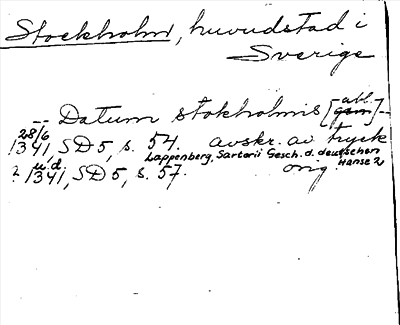 Stockholm, huvudstad i
Sverige
-- Datum stokholmis [abl.] --
28/6
1341, SD 5, s. 54. avskr. av tryck
Lappenberg, Sartorii Gesch. d. deutschen
Hanse 2
u.d.
? 1341, SD 5, s. 57. orig.